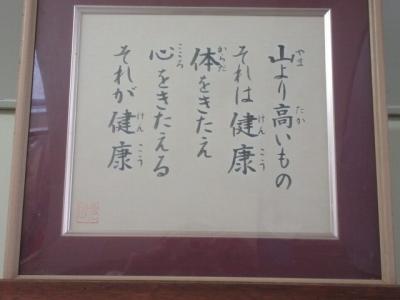 山より高いもの
それは健康
体をきたえ
心をきたえる
それが健康